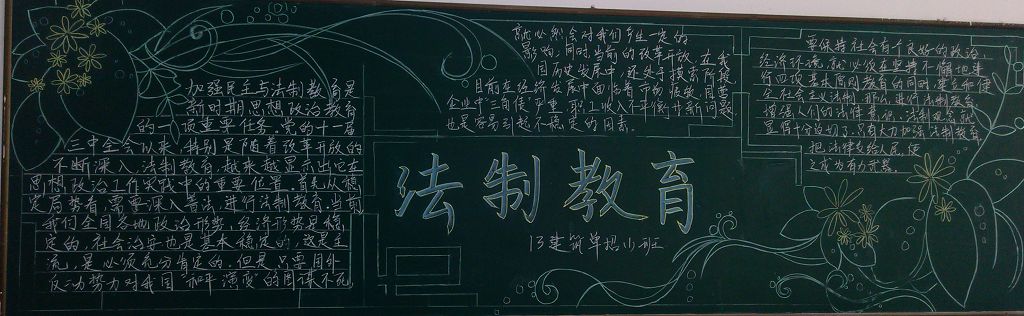 加强民主与法制教育是
新时期思想政治教育
的一项重要任务。党的十一届
三中全会以来,特别是随着改革开放的
不断深入,法制教育越来越显示出它在
思想政治工作实践中的重要位置。首先从稳
定局势看,需要深入普法,进行法制教育。当前
我们全国各地政治形势,经济形势是稳
定的,社会治安也是基本稳定的,这是主
流,是必须充分肯定的。但是只要国外
反动势力对我国“和平演变”的图谋不死,
就必然会对我们产生一定的
影响。同时,当前的改革开放,在我
国历史发展中,还处于摸索阶段
目前在经济发展中面临着市场疲软,
企业中“三角债”严重,职工收入不平衡等新问题
也是容易引起不稳定的因素。
法制教育
13建筑单招小班
要保持社会有个良好的政治
经济环境,就必须在坚持不懈地进
行四项基本原则教育的同时,建立和健
全社会主义法制,那么,进行法制教育,
增强人们的法律意识、法制观念就
显得十分迫切了。只有大力加强法制教育
把法律交给人民,使
之成为有力武器。